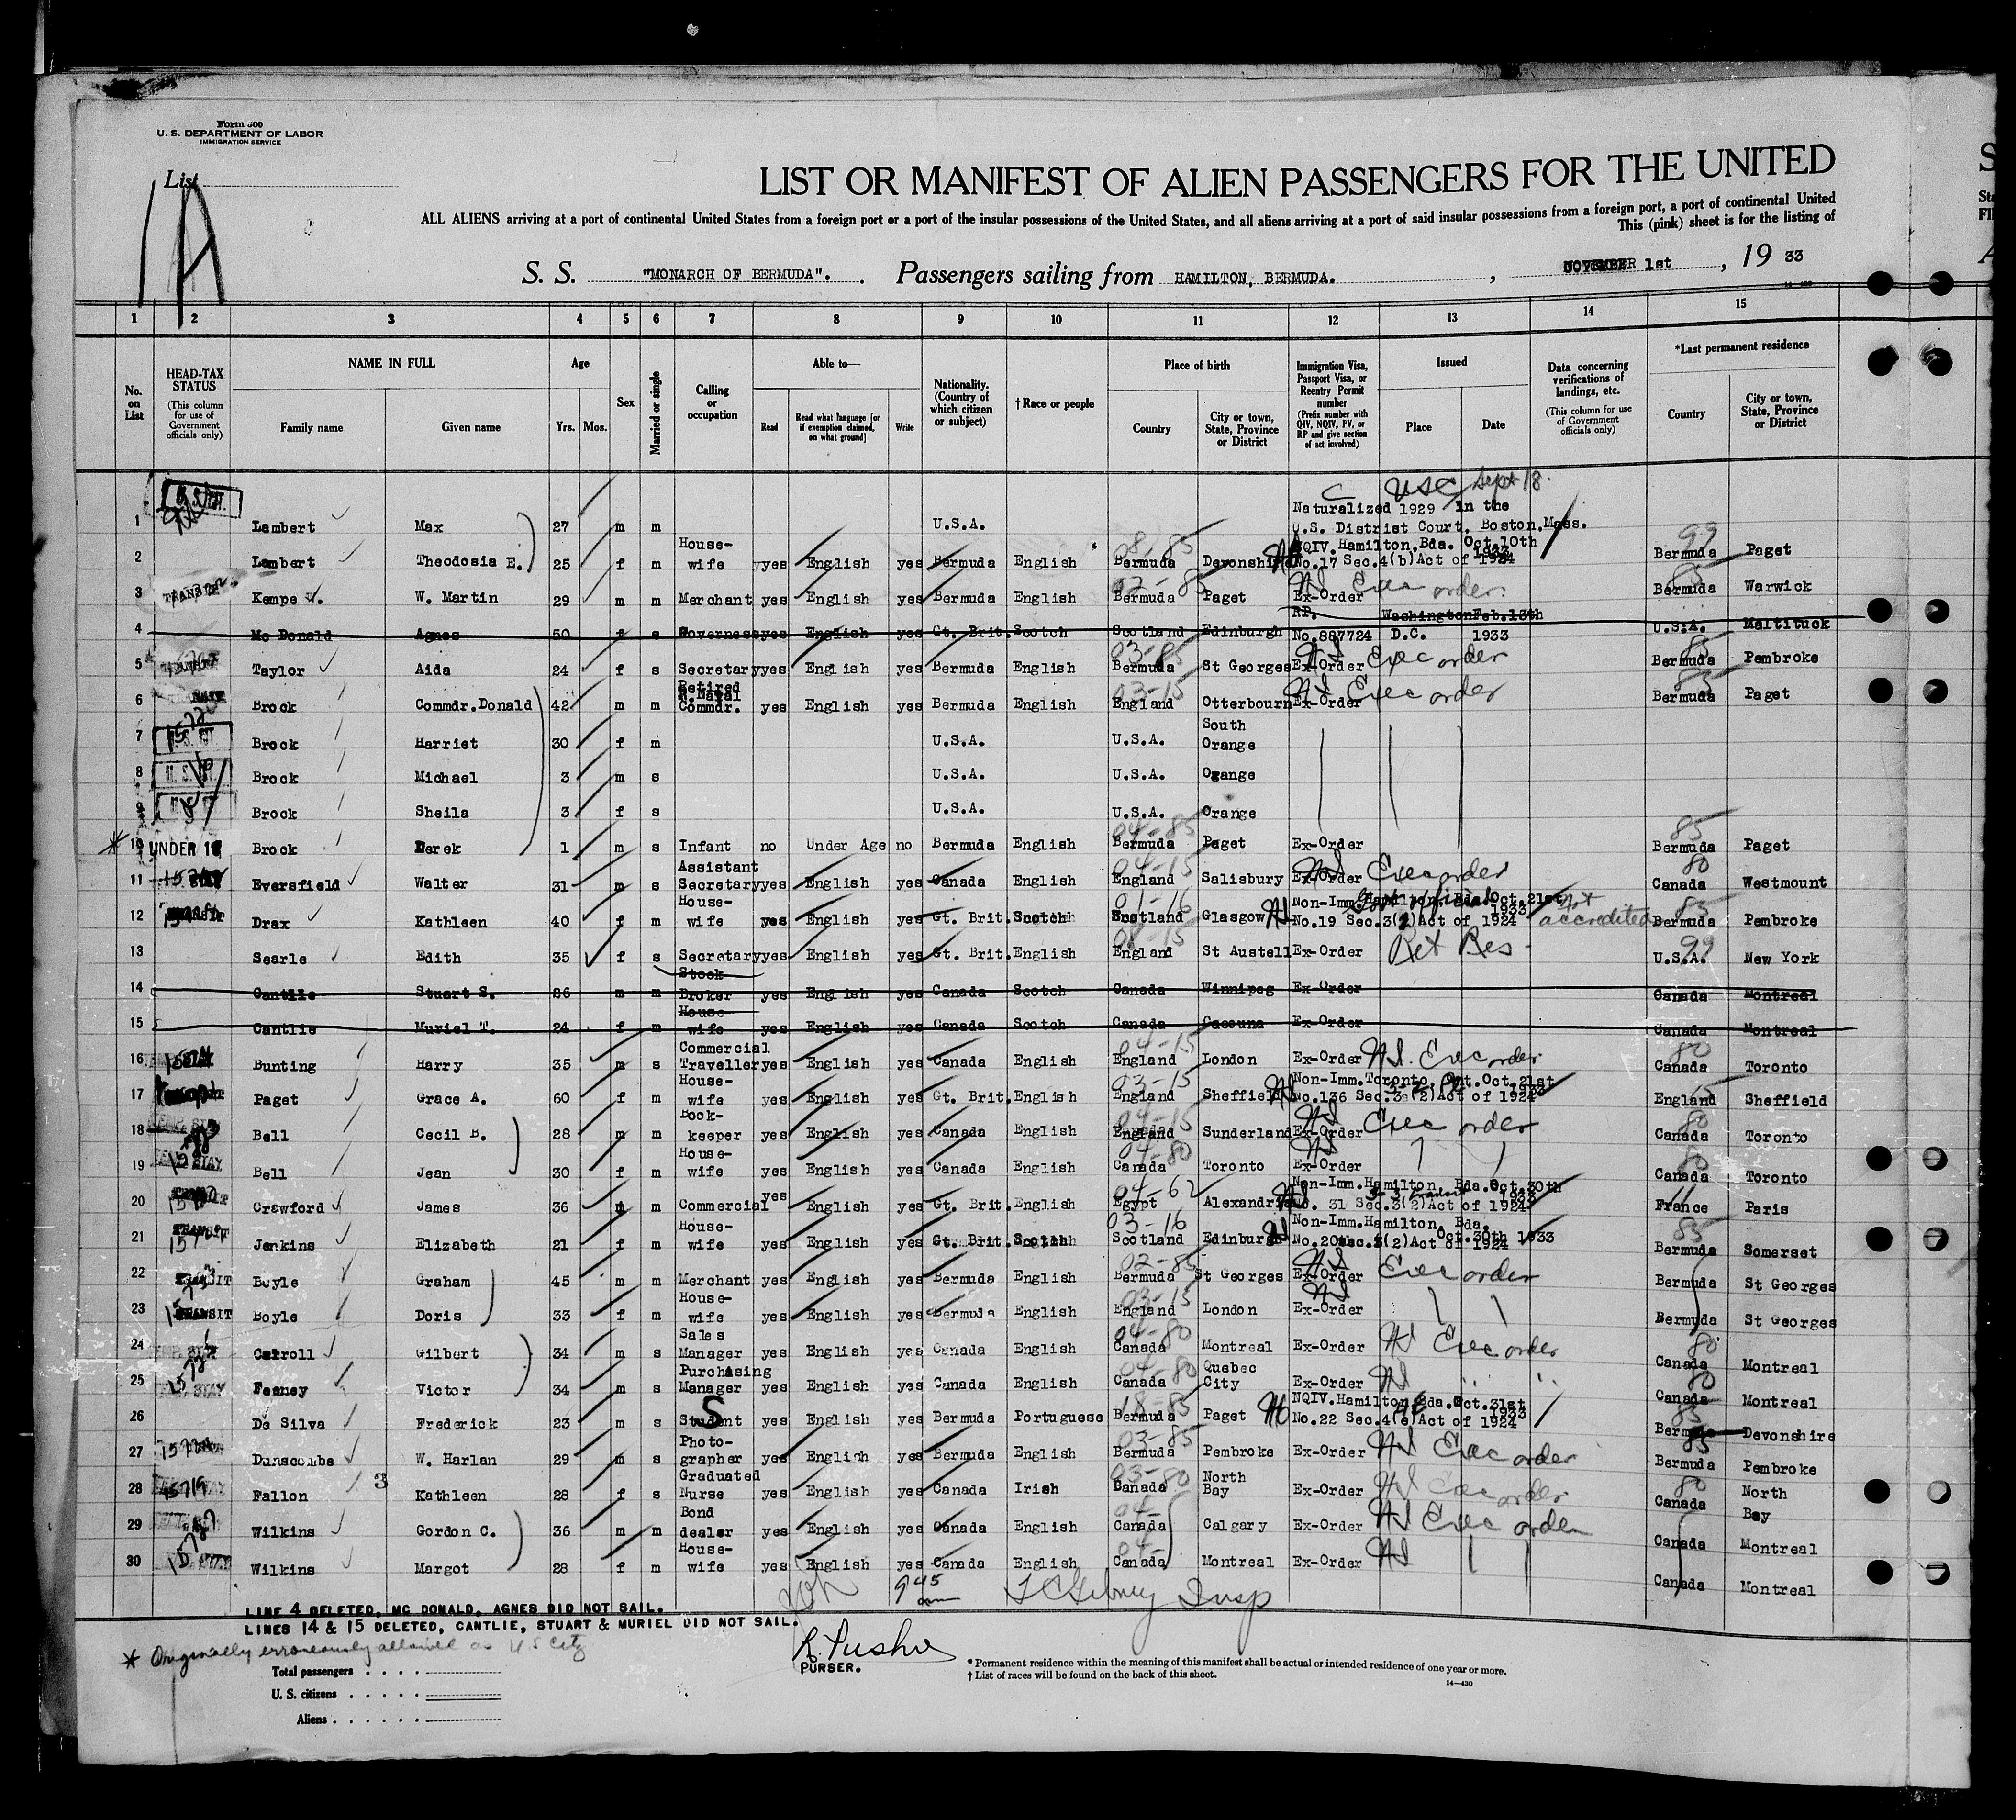 Form 500
U. S. DEPARTMENT OF LABOR
IMMIGRATION SERVICE
List
1A
LIST OR MANIFEST OF ALIEN PASSENGERS FOR THE UNITED
ALL ALIENS arriving at a port of continental United States from a foreign port or a port of the insular possessions of the United States, and all aliens arriving at a port of said insular possessions from a foreign port, a port of continental United
This (pink) sheet is for the listing of
S. S. "MONARCH OF BERMUDA". Passengers sailing from HAMILTON, BERMUDA. , NOVEMBER 1st , 19 33
1 2 3 4 5 6 7 8 9 10 11 12 13 14 15
No. on List
HEAD-TAX STATUS
(This column for use of Government officials only)
NAME IN FULL
Family name Given name
Age
Yrs. Mos.
Sex
Married or single
Calling or occupation
Able to—
Read Read what language [or if exemption claimed, on what ground] Write
Nationality. (Country of which citizen or subject)
†Race or people
Place of birth
Country City or town, State, Province or District
Immigration Visa, Passport Visa, or Reentry Permit number
(Prefix number with QIV, NQIV, PV, or RP and give section of act involved)
Issued
Place Date
Data concerning verifications of landings, etc.
(This column for use of Government officials only)
*Last permanent residence
Country City or town, State, Province or District
1 Lambert Max 27 m m U.S.A. C USC Sept 18. Naturalized 1929 in the U.S. District Court, Boston, Mass.
2 Lambert Theodosia E. 25 f m House-wife yes English yes Bermuda English Bermuda Devonshire NQIV. Hamilton, Bda. Oct.10th 1933 No.17 Sec.4(b)Act of 1924 Bermuda Paget
3 Kempe W. Martin 29 m m Merchant yes English yes Bermuda English 02-85 Bermuda Paget Ex-Order Exec order. 85 Bermuda Warwick
4 Mc Donald Agnes 50 f s Governess yes English yes Gt. Brit. Scotch Scotland Edinburgh RP. No.887724 Washington D.C. Feb.13th 1933 U.S.A. Mattituck
5 Taylor Aida 24 f s Secretary yes English yes Bermuda English 03-85 Bermuda St Georges Ex-Order Exec order 85 Bermuda Pembroke
6 Brock Commdr. Donald 42 m m Retired R.Naval Commdr. yes English yes Bermuda English 03-15 England Otterbourn Ex-Order Exec order 85 Bermuda Paget
7 Brock Harriet 30 f m U.S.A. U.S.A. South Orange
8 Brock Michael 3 m s U.S.A. U.S.A. Orange
9 Brock Sheila 3 f s U.S.A. U.S.A. Orange
* 10 UNDER 16 Brock Derek 1 m s Infant no Under Age no Bermuda English 04-85 Bermuda Paget Ex-Order 85 Bermuda Paget
11 Eversfield Walter 31 m s Assistant Secretary yes English yes Canada English 04-15 England Salisbury Ex-Order Exec order 80 Canada Westmount
12 Drax Kathleen 40 f m House-wife yes English yes Gt. Brit. Scotch 01-16 Scotland Glasgow Non-Imm. Hamilton, Bda. Oct.21st 1933 No.19 Sec.3(2)Act of 1924 Not accredited 85 Bermuda Pembroke
13 Searle Edith 35 f s Secretary yes English yes Gt. Brit. English England St Austell Ex-Order Ret Res- 99 U.S.A. New York
14 Cantlie Stuart S. 26 m m Stock Broker yes English yes Canada Scotch Canada Winnipeg Ex-Order Canada Montreal
15 Cantlie Muriel T. 24 f m House-wife yes English yes Canada Scotch Canada Cacouna Ex-Order Canada Montreal
16 Bunting Harry 35 m s Commercial Traveller yes English yes Canada English 04-15 England London Ex-Order Exec order 80 Canada Toronto
17 Paget Grace A. 60 f m House-wife yes English yes Gt. Brit. English 03-15 England Sheffield Non-Imm. Toronto, Ont. Oct.21st 1933 No.136 Sec.3(2)Act of 1924 15 England Sheffield
18 Bell Cecil B. 28 m m Book-keeper yes English yes Canada English 04-15 England Sunderland Ex-Order Exec order 80 Canada Toronto
19 Bell Jean 30 f m House-wife yes English yes Canada English 04-80 Canada Toronto Ex-Order 80 Canada Toronto
20 Crawford James 36 m Commercial yes English yes Gt. Brit. English 04-62 Egypt Alexandria Non-Imm. Hamilton, Bda. Oct.30th 1933 No. 31 Sec.3(2)Act of 1924 11 France Paris
21 Jenkins Elizabeth 21 f m House-wife yes English yes Gt. Brit. Scotch 03-16 Scotland Edinburgh Non-Imm. Hamilton, Bda. Oct.30th 1933 No.20 Sec.3(2)Act of 1924 85 Bermuda Somerset
22 Boyle Graham 45 m m Merchant yes English yes Bermuda English 02-85 Bermuda St Georges Ex-Order Exec order Bermuda St Georges
23 TRANSIT Boyle Doris 33 f m House-wife yes English yes Bermuda English 03-15 England London Ex-Order Bermuda St Georges
24 Carroll Gilbert 34 m s Sales Manager yes English yes Canada English 04-80 Canada Montreal Ex-Order Exec order 80 Canada Montreal
25 Feeney Victor 34 m s Purchasing Manager yes English yes Canada English 04-80 Canada Quebec City Ex-Order 80 Canada Montreal
26 De Silva Frederick 23 m s Student S yes English yes Bermuda Portuguese 18-85 Bermuda Paget NQIV. Hamilton, Bda. Oct.31st 1933 No.22 Sec.4(e)Act of 1924 85 Bermuda Devonshire
27 Dunscombe W. Harlan 29 m s Photo-grapher yes English yes Bermuda English 03-85 Bermuda Pembroke Ex-Order Exec order 85 Bermuda Pembroke
28 Fallon 3 Kathleen 28 f s Graduated Nurse yes English yes Canada Irish 03-80 Canada North Bay Ex-Order Exec order 80 Canada North Bay
29 Wilkins Gordon C. 36 m m Bond dealer yes English yes Canada English 04- Canada Calgary Ex-Order Exec order Canada Montreal
30 Wilkins Margot 28 f m House-wife yes English yes Canada English 04- Canada Montreal Ex-Order Canada Montreal
9 45 am Insp
LINE 4 DELETED, MC DONALD, AGNES DID NOT SAIL.
LINES 14 & 15 DELETED, CANTLIE, STUART & MURIEL DID NOT SAIL.
* Originally erroneously allowed as U S Citz
PURSER.
Total passengers . . . .
U. S. citizens . . . . .
Aliens . . . . . .
* Permanent residence within the meaning of this manifest shall be actual or intended residence of one year or more.
† List of races will be found on the back of this sheet.
14—430